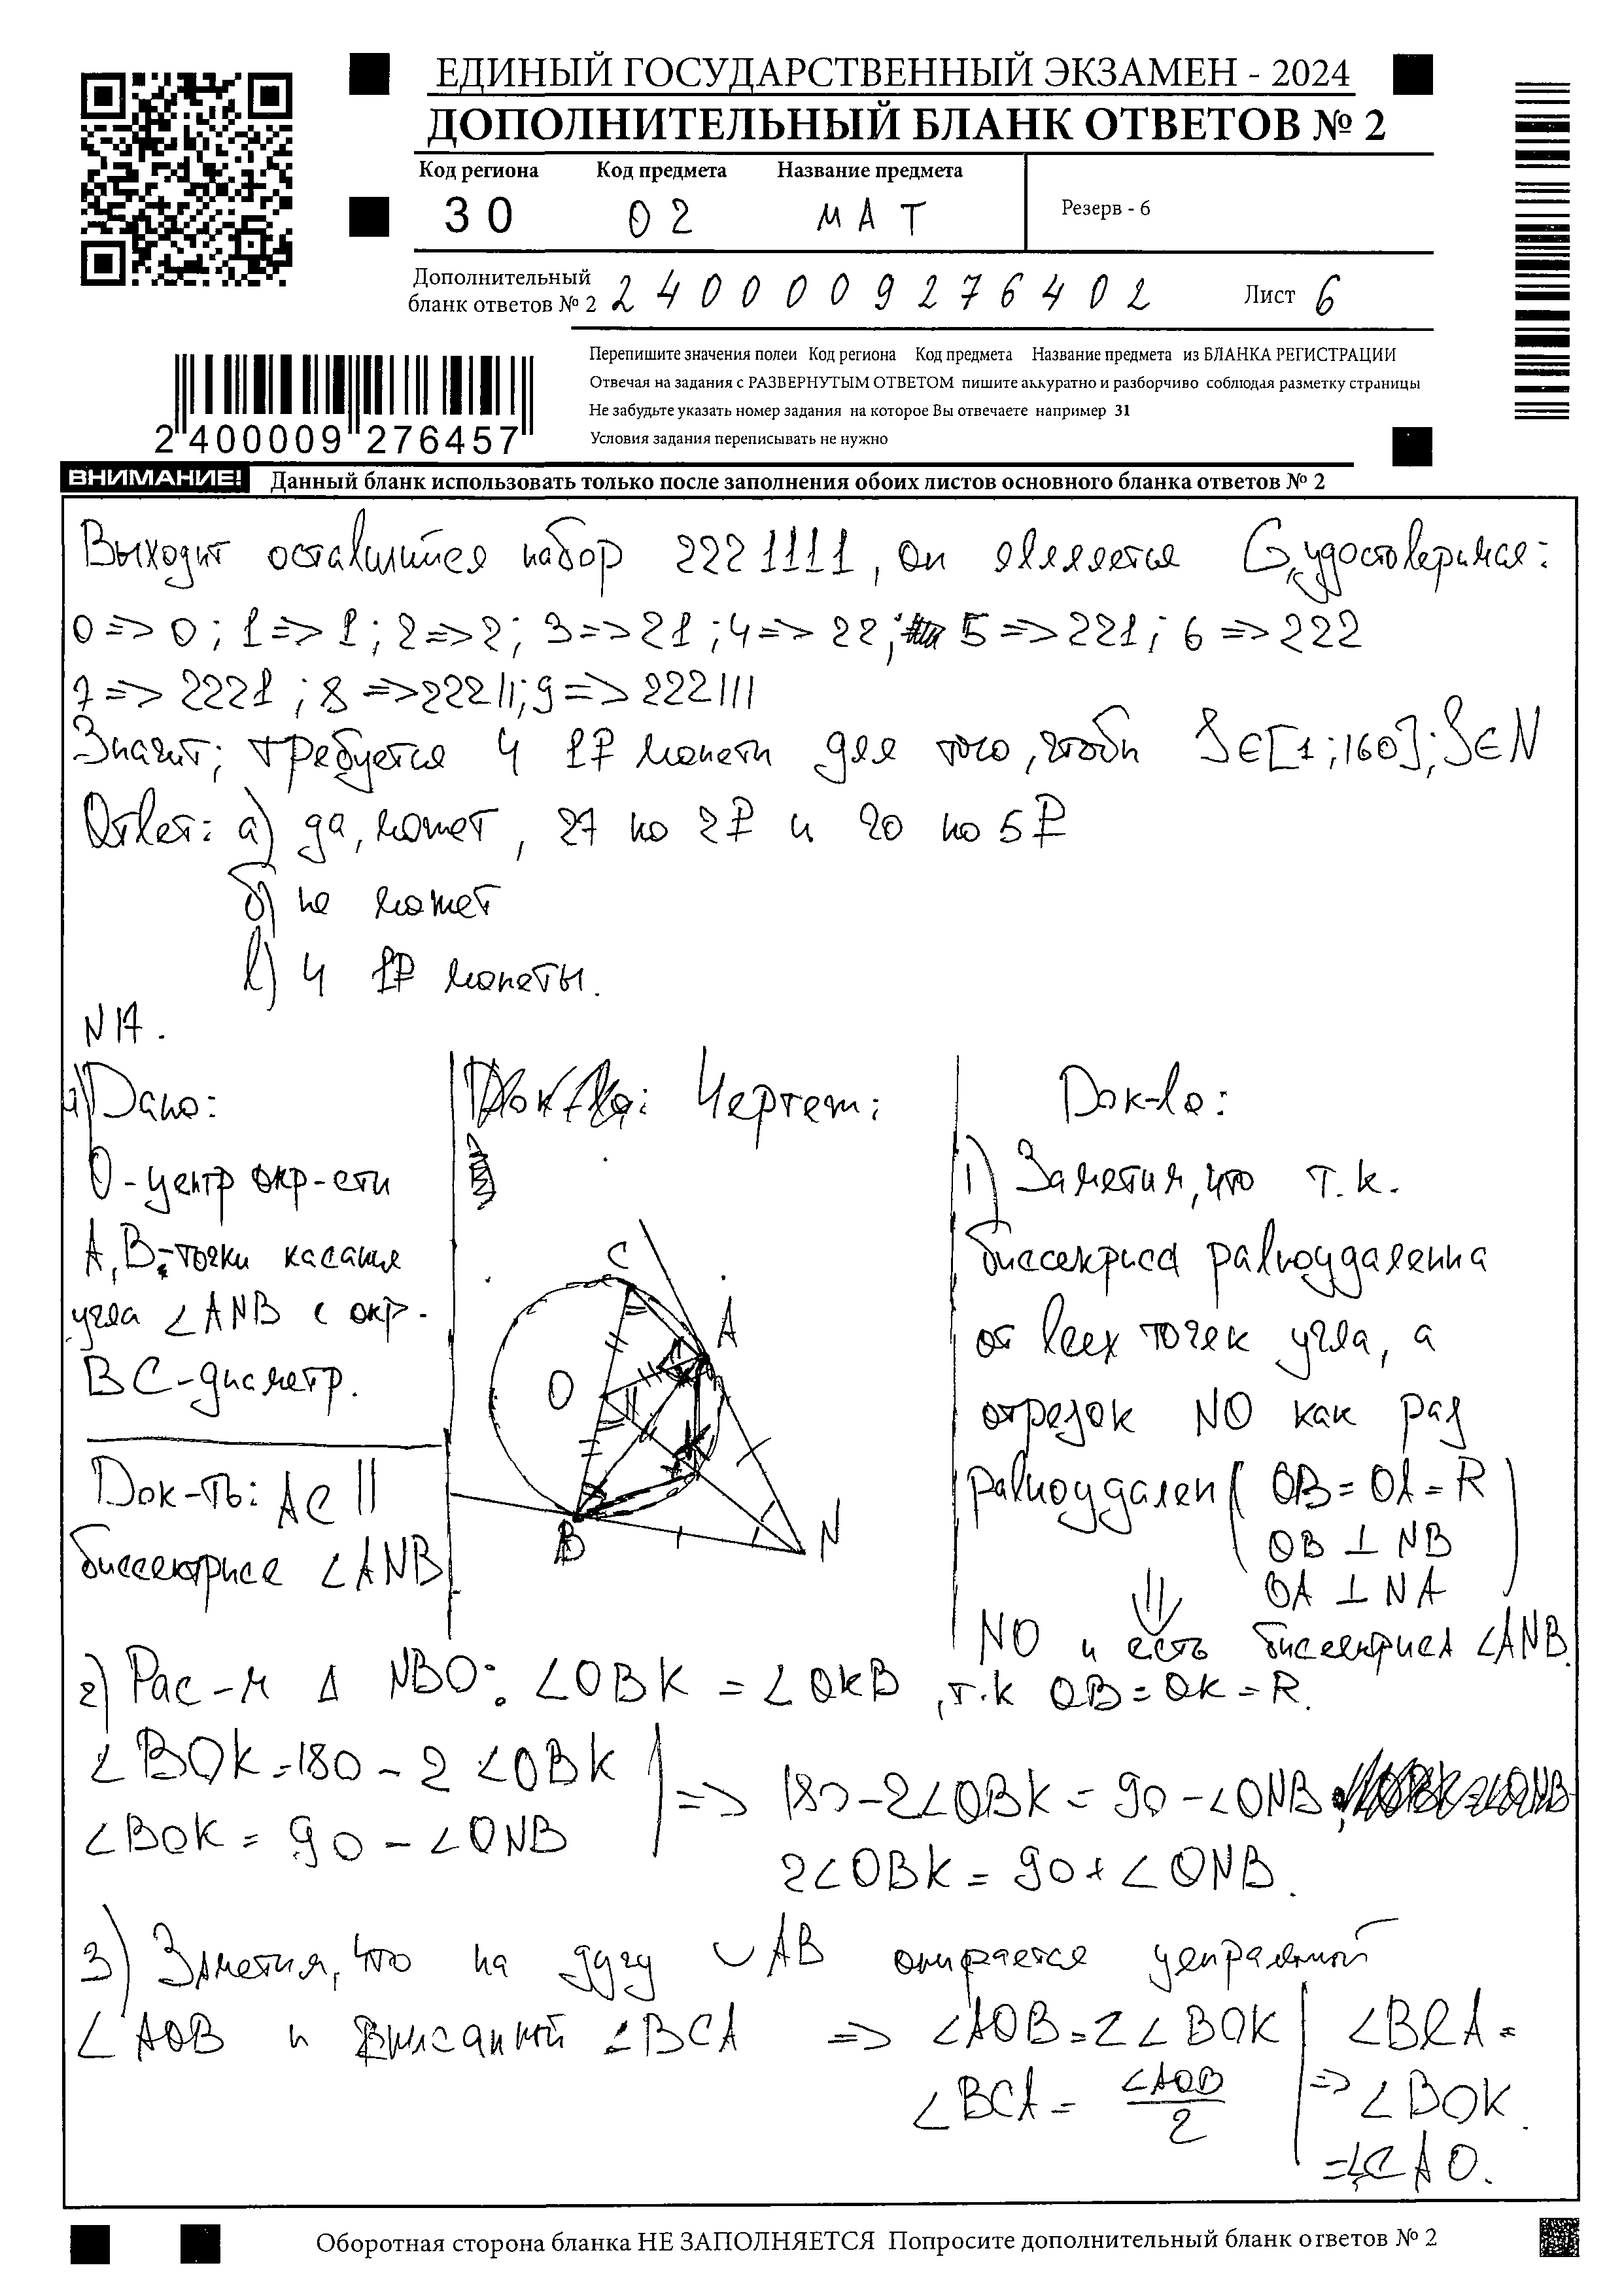 ЕДИНЫЙ ГОСУДАРСТВЕННЫЙ ЭКЗАМЕН - 2024
ДОПОЛНИТЕЛЬНЫЙ БЛАНК ОТВЕТОВ № 2
Код региона Код предмета Название предмета
30 02 МАТ
Резерв - 6
Дополнительный
бланк ответов № 2 2400009276402 Лист 6
Перепишите значения полеи Код региона Код предмета Название предмета из БЛАНКА РЕГИСТРАЦИИ
Отвечая на задания с РАЗВЕРНУТЫМ ОТВЕТОМ пишите аккуратно и разборчиво соблюдая разметку страницы
Не забудьте указать номер задания на которое Вы отвечаете например 31
Условия задания переписывать не нужно
2 400009 276457
ВНИМАНИЕ! Данный бланк использовать только после заполнения обоих листов основного бланка ответов № 2
Выходит оставшийся набор 2221111, он является G, удостоверимся:
0=>0; 1=>1; 2=>2; 3=>21; 4=>22; 5=>221; 6=>222
7=>2221; 8=>22211; 9=>222111
Значит; требуется 4 1₽ монеты для того, чтобы S∈[1;160]; S∈N
Ответ: а) да, может, 27 по 2₽ и 20 по 5₽
б) не может
в) 4 1₽ монеты.
N17.
а) Дано:
О-центр окр-сти
А,В-точки касания
угла ∠ANB с окр.
BC-диаметр.
Док-ть: AC ||
биссектрисе ∠ANB
Чертеж:
C
A
O
B
N
Док-во:
1) Заметим, что т.к.
биссектриса равноудалена
от всех точек угла, а
отрезок NO как раз
равноудален ( OB = OA = R
OB ⊥ NB
OA ⊥ NA )
⇓
NO и есть биссектриса ∠ANB.
2) Рас-м Δ NBO: ∠OBK = ∠OKB, т.к OB = OK = R.
∠BOK = 180 - 2∠OBK
∠BOK = 90 - ∠ONB
=> 180 - 2∠OBK = 90 - ∠ONB
2∠OBK = 90 + ∠ONB.
3) Заметим, что на дугу ∪AB опирается центральный
∠AOB и вписанный ∠BCA => ∠AOB = 2∠BOK
∠BCA = ∠AOB/2
=> ∠BCA =
∠BOK.
=∠CAO.
Оборотная сторона бланка НЕ ЗАПОЛНЯЕТСЯ Попросите дополнительный бланк ответов № 2